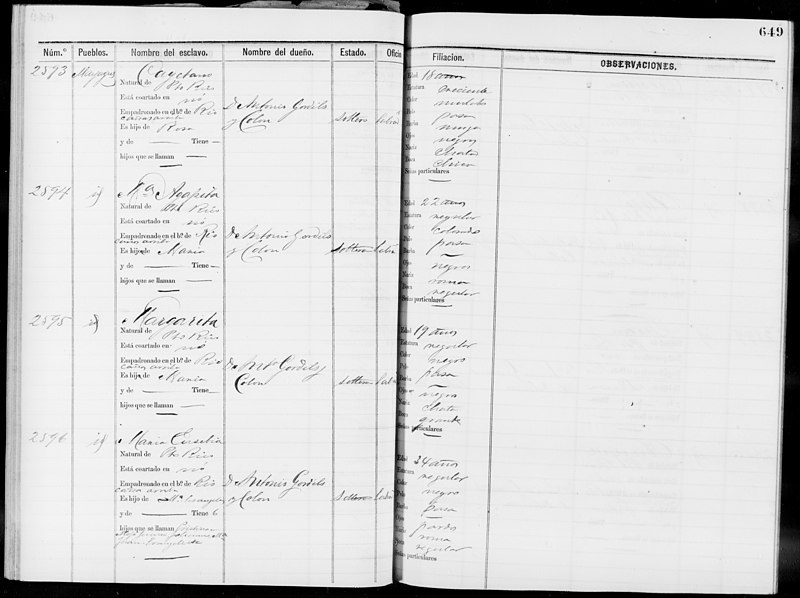 649
Núm.º Pueblos. Nombre del esclavo. Nombre del dueño. Estado. Oficio Filiacion. OBSERVACIONES.
2593 Mayagüez Cayetano
Natural de Pto Rico
Está coartado en nó
Empadronado en el bº. de Rio
cañas arriba
Es hijo de Rosa
y de — Tiene —
hijos que se llaman —
D. Antonio Gordils
y Colon
soltero labra
Edad 18 años
Estatura creciente
Color mulato
Pelo pasa
Barba ninga
Ojos negros
Nariz chata
Boca chica
Señas particulares —
2594 id Mª Agapita
Natural de Pto Rico
Está coartado en nó
Empadronado en el bº. de Rio
cañas arriba
Es hijo de Maria
y de — Tiene —
hijos que se llaman —
D. Antonio Gordils
y Colon
soltera labra
Edad 22 años
Estatura regular
Color colorado
Pelo pasa
Barba —
Ojos negros
Nariz roma
Boca regular
Señas particulares —
2595 id Margarita
Natural de Pto Rico
Está coartado en nó
Empadronado en el bº. de Rio
cañas arriba
Es hijo de Maria
y de — Tiene —
hijos que se llaman —
D. Antº Gordils y
Colon
soltera labra
Edad 19 años
Estatura regular
Color negro
Pelo pasa
Barba —
Ojos negros
Nariz chata
Boca grande
Señas particulares
2596 id Maria Ersilia
Natural de Pto Rico
Está coartado en nó
Empadronado en el bº. de Rio
cañas arriba
Es hijo de Mª
y de — Tiene 6
hijos que se llaman
Juan Evangelista
D. Antonio Gordils
y Colon
soltera labra
Edad 34 años
Estatura regular
Color negro
Pelo pasa
Barba —
Ojos pardos
Nariz roma
Boca regular
Señas particulares